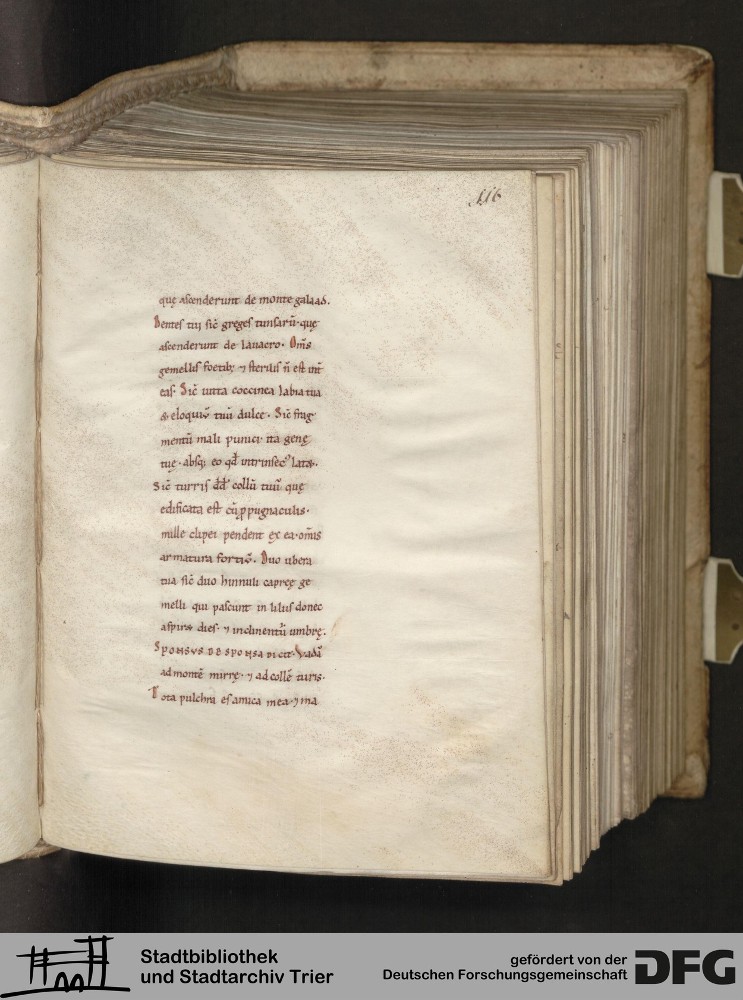 116
quę ascenderunt de monte galaad.
Dentes tui sic̄ greges tunsarū· quę
ascenderunt de lauacro· Om̄s
gemellis foetib; ⁊ sterilis n̄ est int̄
eas· Sic̄ uitta coccinea labia tua
& eloquiū tuū dulce· Sic̄ frag
mentū mali punici· ita genę
tuę· absq; eo qd̄ intrinsec᷒ lat&·
Sic̄ turris dd̄ collū tuū quę
edificata est cū ꝓpugnaculis·
mille clipei pendent ex ea· om̄is
armatura fortiū· Duo ubera
tua sic̄ duo hinnuli capreę ge
melli qui pascunt in liliis donec
aspir& dies· ⁊ inclinent᷑ umbrę.
SPONSVS DE SPONSA DICIT· Vadā
ad montē mirrę· ⁊ ad collē turis·
Tota pulchra es amica mea· ⁊ ma
Stadtbibliothek
und Stadtarchiv Trier
gefördert von der
Deutschen Forschungsgemeinschaft
DFG